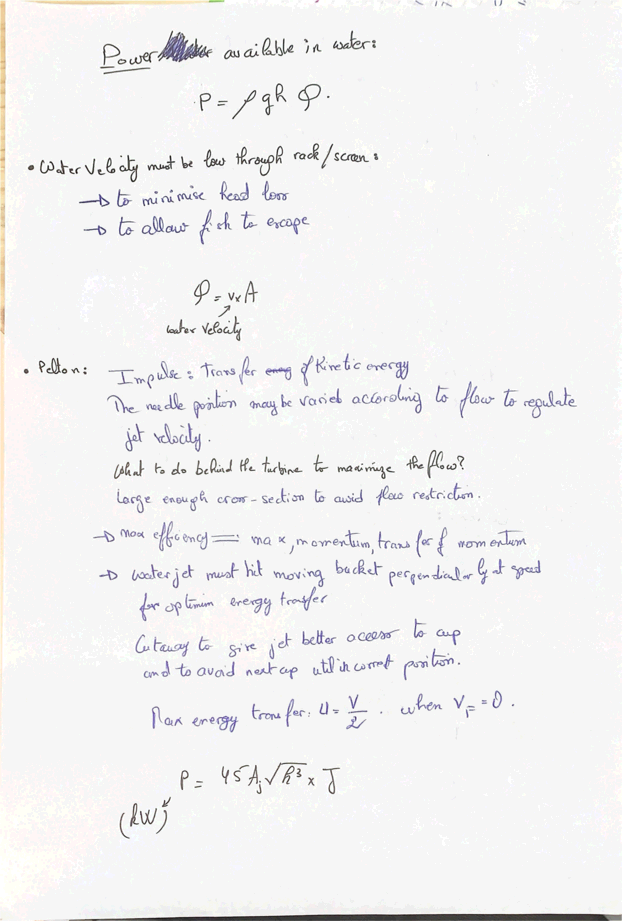 Power available in water:
P = ρ g h Q.
• Water Velocity must be low through rack/screen:
→ to minimise head loss
→ to allow fish to escape
Q = v x A
water velocity
• Pelton: Impulse: Transfer of Kinetic energy
The needle position may be varied according to flow to regulate
jet velocity.
What to do behind the turbine to maximize the flow?
Large enough cross-section to avoid flow restriction.
→ max efficency = max, momentum, transfer of momentum
→ water jet must hit moving bucket perpendicularly at speed
for optimum energy transfer
Cutaway to give jet better access to cup
and to avoid next cup until in correct position.
Max energy transfer: U = V/2 . when V_F = 0.
P = 45 A_j √h³ x J
(kW)